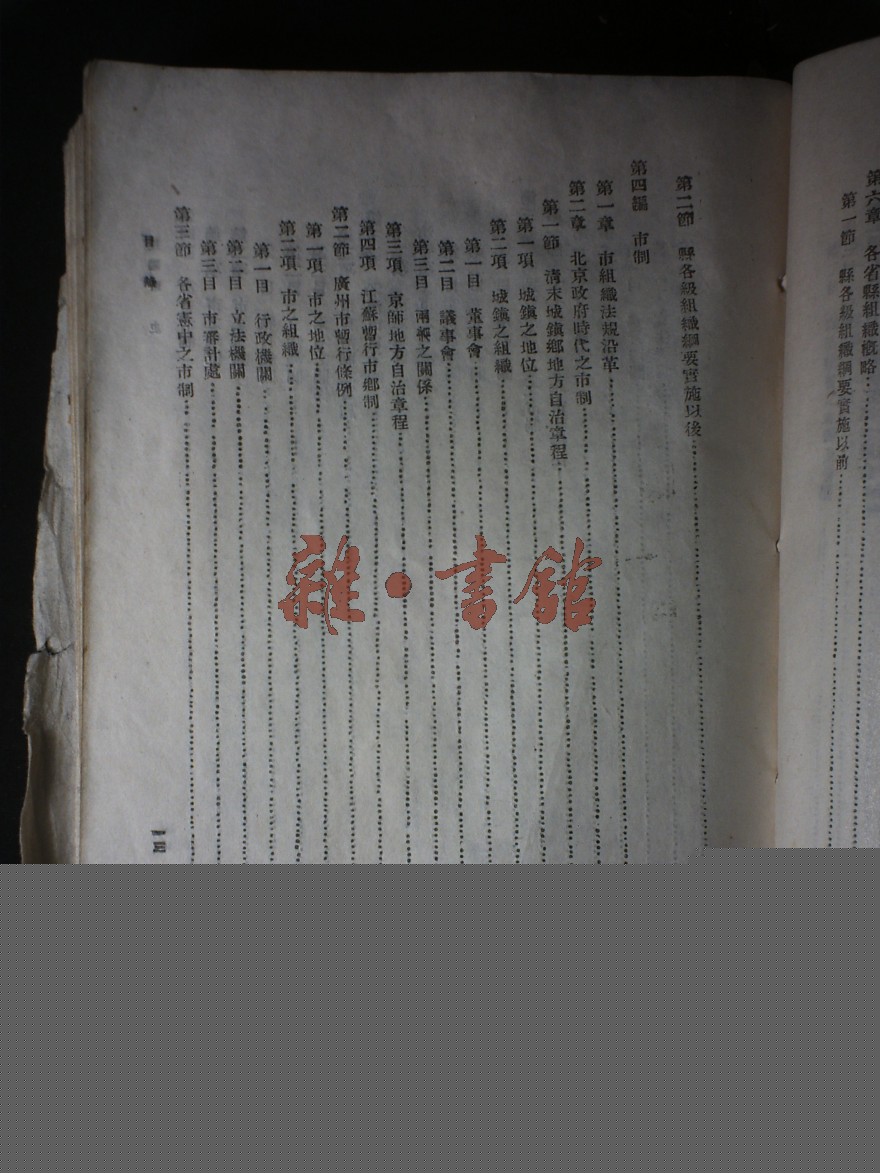 第六章　各省縣組織概略
第一節　縣各級組織綱要實施以前
第二節　縣各級組織綱要實施以後
第四編　市制
第一章　市組織法規沿革
第二章　北京政府時代之市制
第一節　淸末城鎭鄉地方自治章程
第一項　城鎭之地位
第二項　城鎭之組織
第一目　董事會
第二目　議事會
第三目　兩者之關係
第三項　京師地方自治章程
第四項　江蘇暫行市鄉制
第二節　廣州市暫行條例
第一項　市之地位
第二項　市之組織
第一目　行政機關
第二目　立法機關
第三目　市審計處
第三節　各省憲中之市制
目　錄
雜·書館